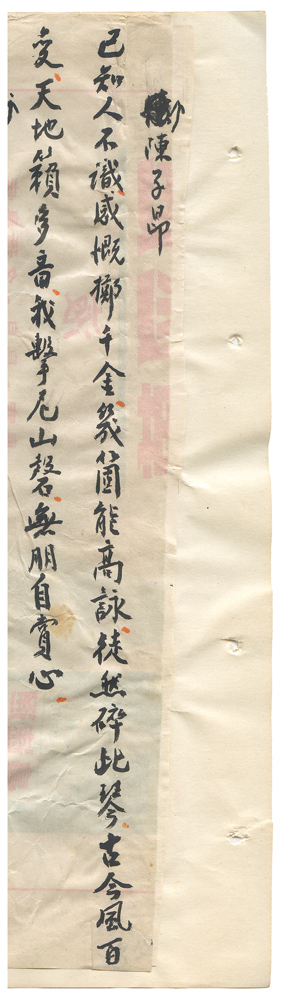 陳子昂
已知人不識感慨擲千金幾箇能高詠徒然碎此琴古今風百
変天地籟多音我擊尼山磬無朋自賞心